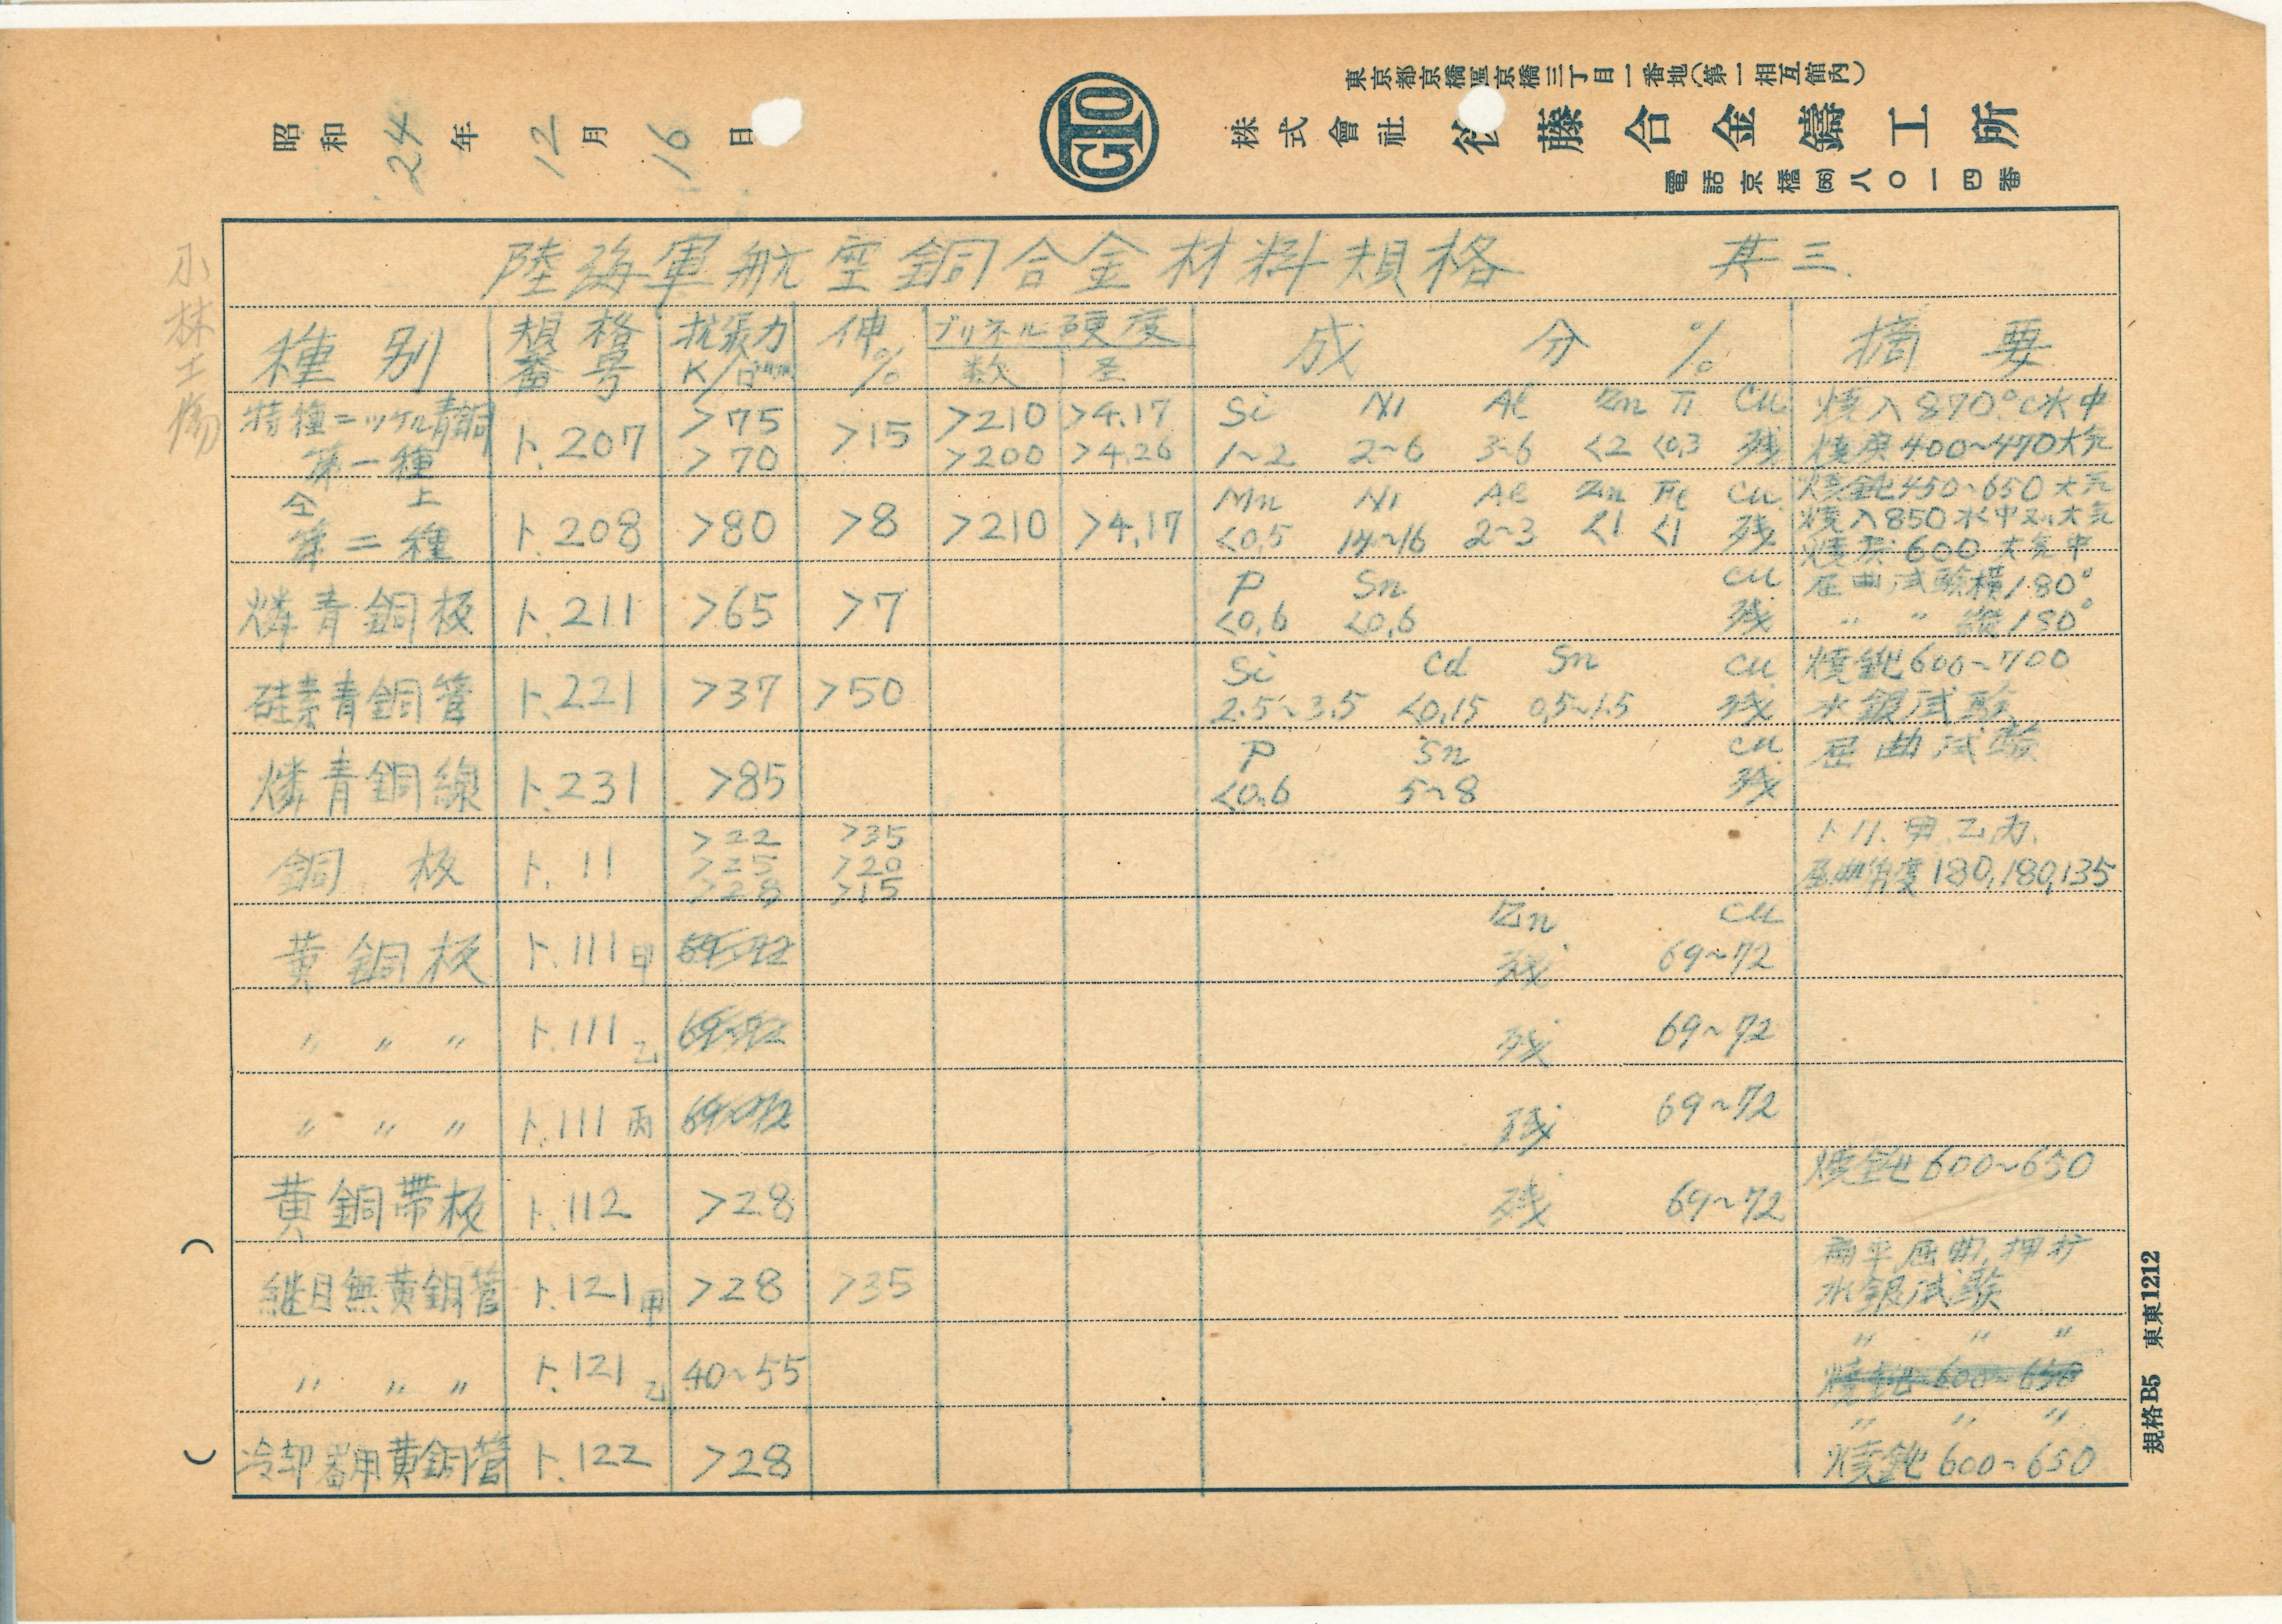 東京都京橋區京橋三丁目一番地(第一相互館内)
株式會社 後藤合金鑄工所
電話京橋(56)八〇一四番
GTO
昭和24年12月16日
小林工場
陸海軍航空銅合金材料規格 其三.
種別 規格番号 抗張力 K/ 伸% ブリネル硬度 数 径 成分% 摘要
特種ニッケル青銅 第一種 ト.207 >75 >70 >15 >210 >4.17 >200 >4.26
Si Ni Al Zn Ti Cu
1~2 2~6 3~6 <2 <0.3 残
焼入870°C水中
焼戻400~470大気
仝上 第二種 ト.208 >80 >8 >210 >4.17
Mn Ni Al Zn Fe Cu
<0.5 14~16 2~3 <1 <1 残
焼鈍450~650大気
焼入850水中又ハ大気
焼戻600大気中
燐青銅板 ト.211 >65 >7
P Sn Cu
<0.6 <0.6 残
屈曲試験横180°
〃 〃 縦180°
硅素青銅管 ト.221 >37 >50
Si Cd Sn Cu
2.5~3.5 <0.15 0.5~1.5 残
焼鈍600~700
水銀試験
燐青銅線 ト.231 >85
P Sn Cu
<0.6 5~8 残
屈曲試験
銅板 ト.11
>22 >35
>25 >20
>28 >15
ト11.甲.乙.丙.
屈曲角度180,180,135
Zn Cu
黄銅板 ト.111甲 69~72 残 69~72
〃 〃 〃 ト.111乙 69~72 残 69~72
〃 〃 〃 ト.111丙 69~72 残 69~72
黄銅帯板 ト.112 >28 残 69~72 焼鈍600~650
継目無黄銅管 ト.121甲 >28 >35
扁平屈曲,押拡
水銀試験
〃 〃 〃 ト.121乙 40~55
〃 〃 〃
焼鈍600~650
冷却器用黄銅管 ト.122 >28
〃 〃 〃
焼鈍600~650
規格B5 東東1212